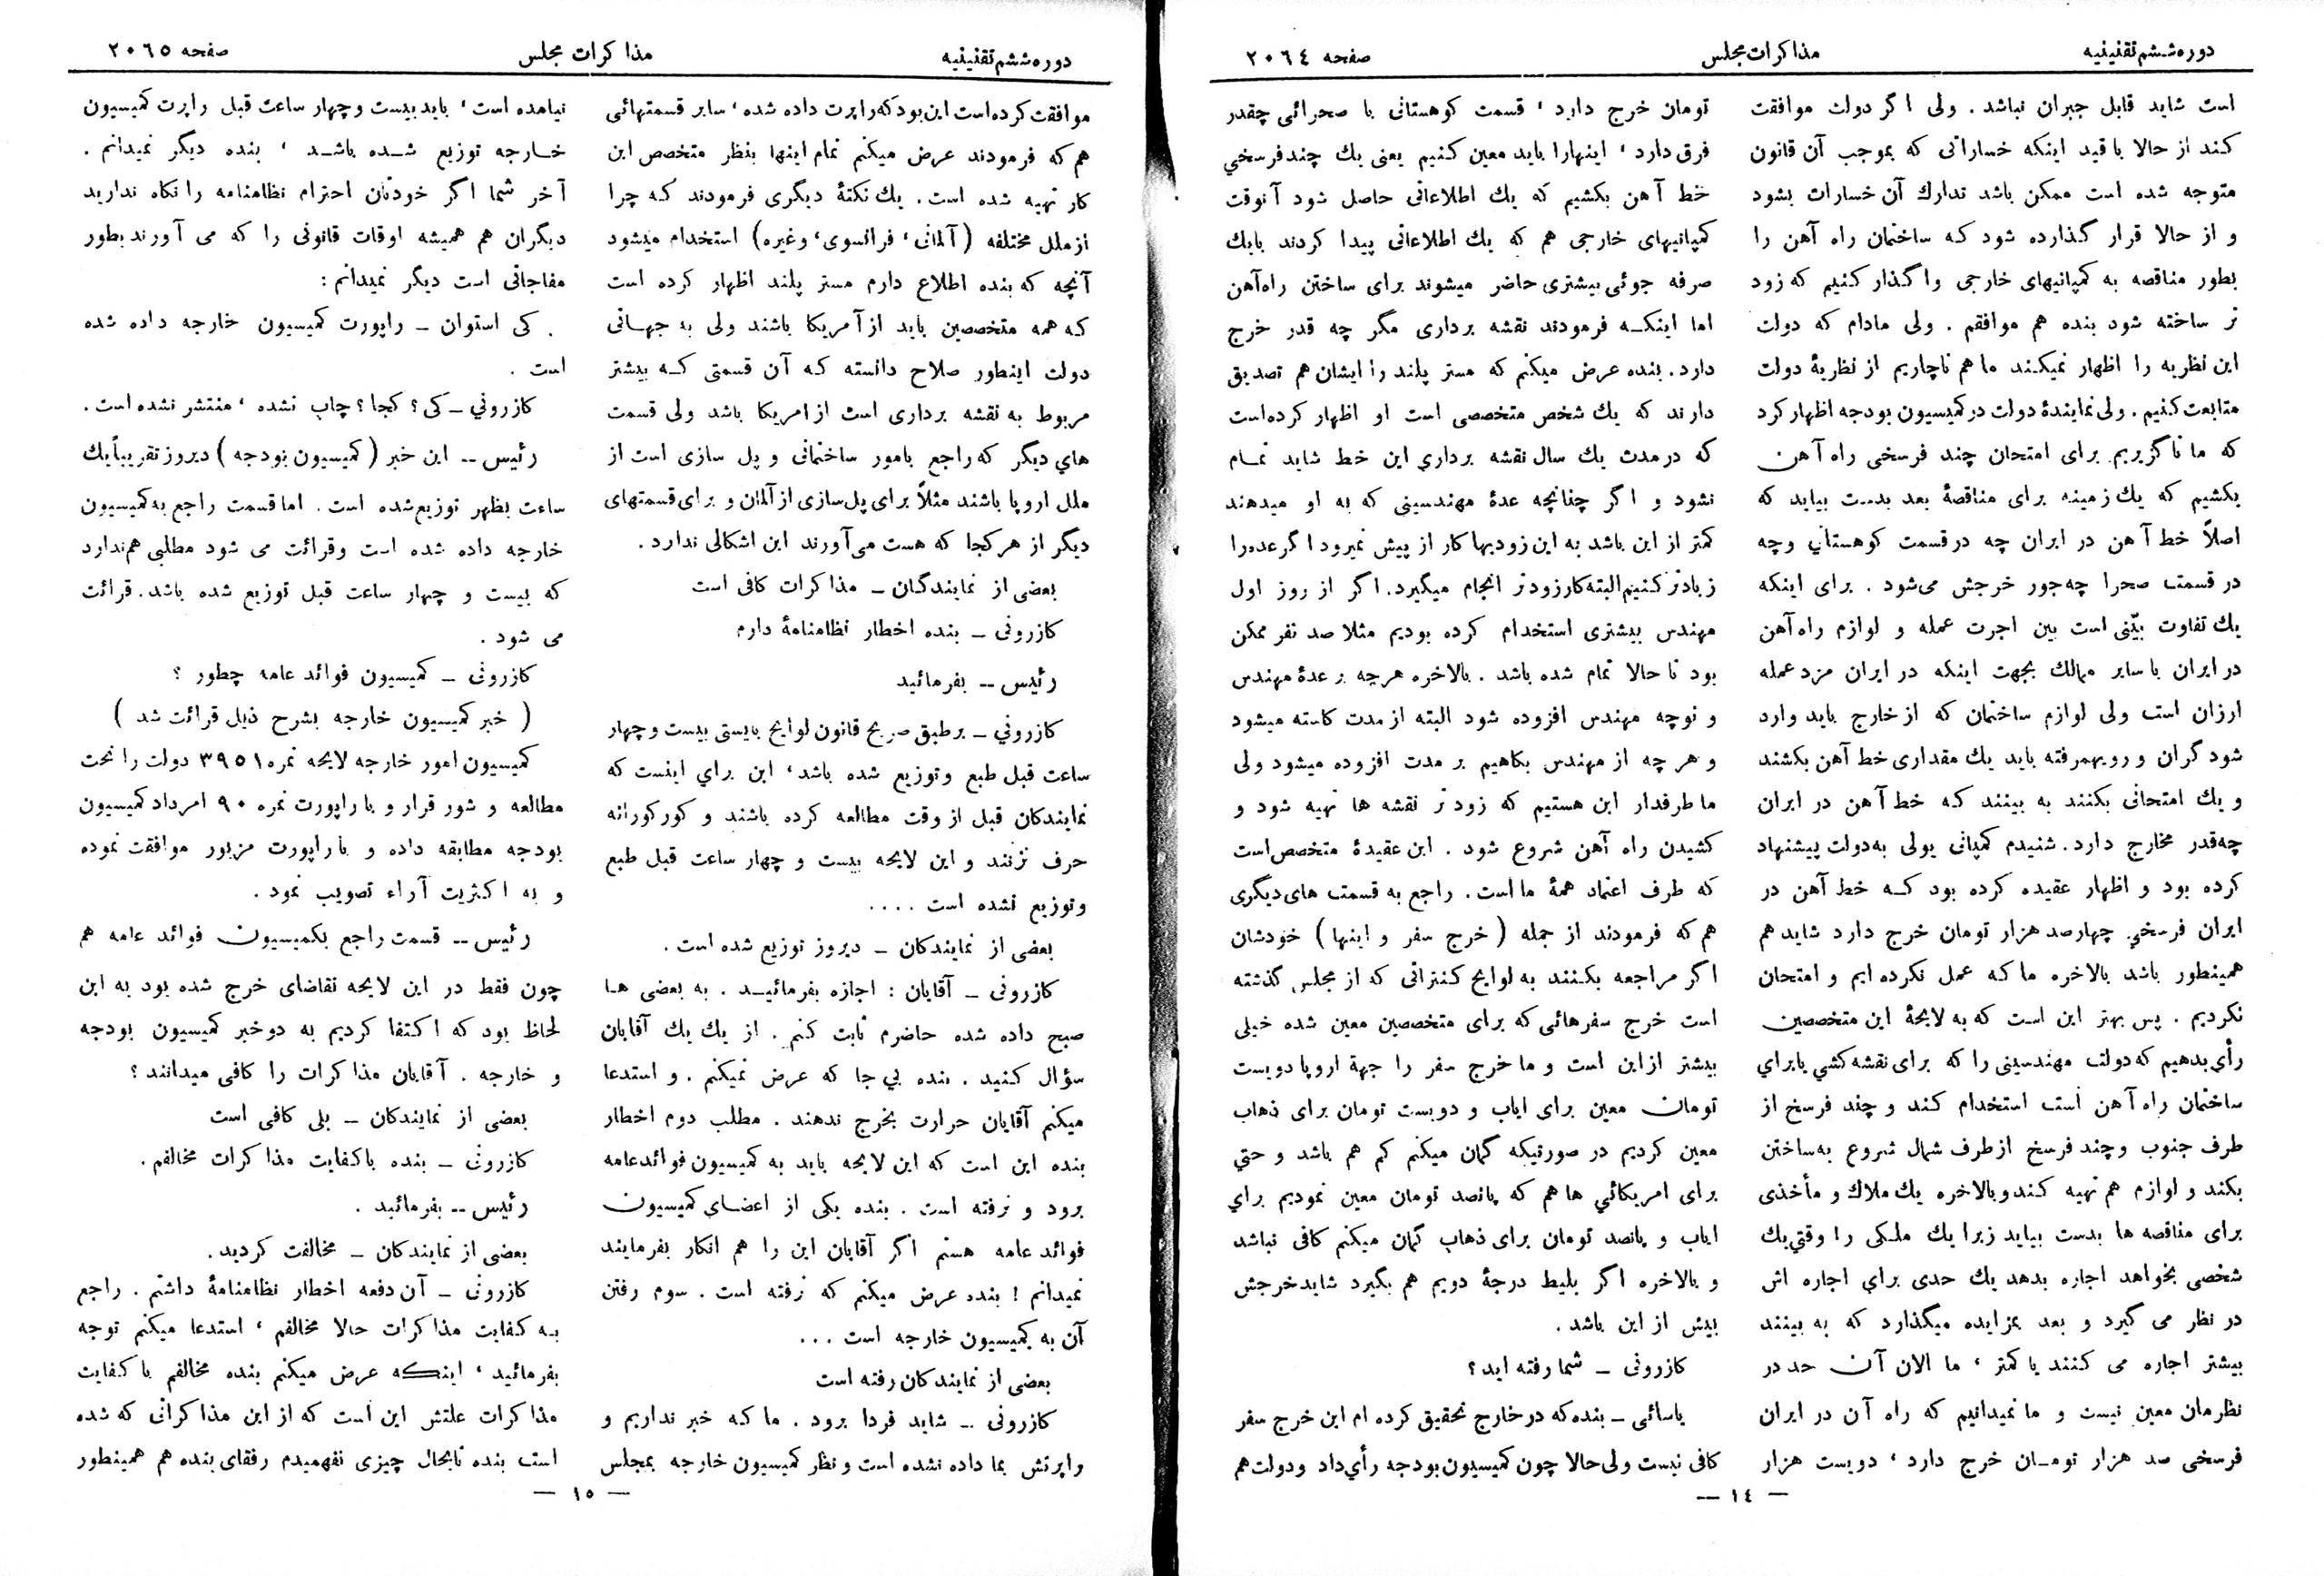 دوره ششم تقنینیه
مذاکرات مجلس
صفحه ۲۰٦٤
است شاید قابل جبران نباشد . ولی اگر دولت موافقت
کند از حالا با قید اینکه خساراتی که بموجب آن قانون
متوجه شده است ممکن باشد تدارك آن خسارات بشود
و از حالا قرار گذارده شود که ساختمان راه آهن را
بطور مناقصه به کمپانیهای خارجی واگذار کنیم که زود
تر ساخته شود بنده هم موافقم . ولی مادام که دولت
این نظریه را اظهار نمیکند ما هم ناچاریم از نظریهٔ دولت
متابعت کنیم . ولی نمایندهٔ دولت در کمیسیون بودجه اظهار کرد
که ما ناگزیریم برای امتحان چند فرسخی راه آهن
بکشیم که یك زمینه برای مناقصهٔ بعد بدست بیاید که
اصلاً خط آهن در ایران چه در قسمت کوهستانی وچه
در قسمت صحرا چه‌جور خرجش می‌شود . برای اینکه
یك تفاوت بیّنی است بین اجرت عمله و لوازم راه‌آهن
در ایران با سایر ممالك بجهت اینکه در ایران مزد عمله
ارزان است ولی لوازم ساختمان که از خارج باید وارد
شود گران و رویهمرفته باید یك مقداری خط آهن بکشند
و یك امتحانی بکنند به بینند که خط آهن در ایران
چه‌قدر مخارج دارد . شنیدم کمپانی یولی به‌دولت پیشنهاد
کرده بود و اظهار عقیده کرده بود که خط آهن در
ایران فرسخی چهارصد هزار تومان خرج دارد شاید هم
همینطور باشد بالاخره ما که عمل نکرده ایم و امتحان
نکردیم . پس بهتر این است که به لایحهٔ این متخصصین
رأی بدهیم که دولت مهندسینی را که برای نقشه کشی یا برای
ساختمان راه آهن است استخدام کند و چند فرسخ از
طرف جنوب و چند فرسخ از طرف شمال شروع به‌ساختن
بکند و لوازم هم تهیه کند و بالاخره یك ملاك و مأخذی
برای مناقصه ها بدست بیاید زیرا یك ملکی را وقتی یك
شخصی بخواهد اجاره بدهد یك حدی برای اجاره اش
در نظر می گیرد و بعد بمزایده میگذارد که به بینند
بیشتر اجاره می کنند یا کمتر ، ما الان آن حد در
نظرمان معین نیست و ما نمیدانیم که راه آن در ایران
فرسخی صد هزار تومان خرج دارد ، دویست هزار
تومان خرج دارد ، قسمت کوهستانی با صحرائی چقدر
فرق دارد ، اینهارا باید معین کنیم یعنی یك چند فرسخی
خط آهن بکشیم که یك اطلاعاتی حاصل شود آنوقت
کمپانیهای خارجی هم که یك اطلاعاتی پیدا کردند بایك
صرفه جوئی بیشتری حاضر میشوند برای ساختن راه‌آهن
اما اینکه فرمودند نقشه برداری مگر چه قدر خرج
دارد . بنده عرض میکنم که مستر پلند را ایشان هم تصدیق
دارند که یك شخص متخصصی است او اظهار کرده‌است
که در مدت یك سال نقشه برداری این خط شاید تمام
نشود و اگر چنانچه عدهٔ مهندسینی که به او میدهند
کمتر از این باشد به این زودیها کار از پیش نمیرود اگر عده‌را
زیادتر کنیم البته کار زودتر انجام میگیرد . اگر از روز اول
مهندس بیشتری استخدام کرده بودیم مثلا صد نفر ممکن
بود تا حالا تمام شده باشد . بالاخره هرچه بر عدهٔ مهندس
و نوچه مهندس افزوده شود البته از مدت کاسته میشود
و هر چه از مهندس بکاهیم بر مدت افزوده میشود ولی
ما طرفدار این هستیم که زودتر نقشه ها تهیه شود و
کشیدن راه آهن شروع شود . این عقیدهٔ متخصص است
که طرف اعتماد همهٔ ما است . راجع به قسمت های دیگری
هم که فرمودند از جمله ( خرج سفر و اینها ) خودشان
اگر مراجعه بکنند به لوایح کنتراتی که از مجلس گذشته
است خرج سفرهائی که برای متخصصین معین شده خیلی
بیشتر از این است و ما خرج سفر را جهة اروپا دویست
تومان معین برای ایاب و دویست تومان برای ذهاب
معین کردیم در صورتیکه گمان میکنم کم هم باشد و حتی
برای امریکائی ها هم که پانصد تومان معین نمودیم برای
ایاب و پانصد تومان برای ذهاب گمان میکنم کافی نباشد
و بالاخره اگر بلیط درجهٔ دویم هم بگیرد شاید خرجش
بیش از این باشد .
کازرونی ـ شما رفته اید ؟
یاسائی ـ بنده که در خارج تحقیق کرده ام این خرج سفر
کافی نیست ولی حالا چون کمیسیون بودجه رأی داد و دولت هم
— ١٤ —
دوره ششم تقنینیه
مذاکرات مجلس
صفحه ۲۰٦٥
موافقت کرده است این بود که راپرت داده شده ، سایر قسمتهائی
هم که فرمودند عرض میکنم تمام اینها بنظر متخصص این
کار تهیه شده است . یك نکتهٔ دیگری فرمودند که چرا
از ملل مختلفه ( آلمانی ، فرانسوی ، وغیره ) استخدام میشود
آنچه که بنده اطلاع دارم مستر پلند اظهار کرده است
که همه متخصصین باید از آمریکا باشند ولی به جهاتی
دولت اینطور صلاح دانسته که آن قسمتی که بیشتر
مربوط به نقشه برداری است از امریکا باشد ولی قسمت
های دیگر که راجع بامور ساختمانی و پل سازی است از
ملل اروپا باشند مثلاً برای پل‌سازی از آلمان و برای قسمتهای
دیگر از هرکجا که هست می‌آورند این اشکالی ندارد .
بعضی از نمایندگان ـ مذاکرات کافی است
کازرونی ـ بنده اخطار نظامنامهٔ دارم
رئیس -- بفرمائید
کازرونی ـ برطبق صریح قانون لوایح بایستی بیست و چهار
ساعت قبل طبع و توزیع شده باشد ، این برای اینست که
نمایندگان قبل از وقت مطالعه کرده باشند و کورکورانه
حرف نزنند و این لایحه بیست و چهار ساعت قبل طبع
و توزیع نشده است ....
بعضی از نمایندگان ـ دیروز توزیع شده است .
کازرونی ـ آقایان : اجازه بفرمائید . به بعضی ها
صبح داده شده حاضرم ثابت کنم . از یك یك آقایان
سؤال کنید . بنده بی جا که عرض نمیکنم . و استدعا
میکنم آقایان حرارت بخرج ندهند . مطلب دوم اخطار
بنده این است که این لایحه باید به کمیسیون فوائدعامه
برود و نرفته است . بنده یکی از اعضای کمیسیون
فوائد عامه هستم اگر آقایان این را هم انکار بفرمایند
نمیدانم ! بنده عرض میکنم که نرفته است . سوم رفتن
آن به کمیسیون خارجه است ...
بعضی از نمایندگان رفته است
کازرونی ـ شاید فردا برود . ما که خبر نداریم و
راپرتش بما داده نشده است و نظر کمیسیون خارجه بمجلس
نیامده است ، باید بیست و چهار ساعت قبل راپرت کمیسیون
خارجه توزیع شده باشد ، بنده دیگر نمیدانم .
آخر شما اگر خودتان احترام نظامنامه را نگاه ندارید
دیگران هم همیشه اوقات قانونی را که می آورند بطور
مفاجاتی است دیگر نمیدانم :
کی استوان ـ راپورت کمیسیون خارجه داده شده
است .
کازرونی ـ کی ؟ کجا ؟ چاپ نشده ، منتشر نشده است .
رئیس -- این خبر ( کمیسیون بودجه ) دیروز تقریباً یك
ساعت بظهر توزیع شده است . اما قسمت راجع به کمیسیون
خارجه داده شده است و قرائت می شود مطلبی هم ندارد
که بیست و چهار ساعت قبل توزیع شده باشد . قرائت
می شود .
کازرونی ـ کمیسیون فوائد عامه چطور ؟
( خبر کمیسیون خارجه بشرح ذیل قرائت شد )
کمیسیون امور خارجه لایحه نمره ۳۹٥۱ دولت را تحت
مطالعه و شور قرار و با راپورت نمره ۹۰ امرداد کمیسیون
بودجه مطابقه داده و با راپورت مزبور موافقت نموده
و به اکثریت آراء تصویب نمود .
رئیس -- قسمت راجع بکمیسیون فوائد عامه هم
چون فقط در این لایحه تقاضای خرج شده بود به این
لحاظ بود که اکتفا کردیم به دو خبر کمیسیون بودجه
و خارجه . آقایان مذاکرات را کافی میدانند ؟
بعضی از نمایندکان ـ بلی کافی است
کازرونی ـ بنده باکفایت مذاکرات مخالفم .
رئیس -- بفرمائید .
بعضی از نمایندکان ـ مخالفت کردید .
کازرونی ـ آن دفعه اخطار نظامنامهٔ داشتم . راجع
به کفایت مذاکرات حالا مخالفم ، استدعا میکنم توجه
بفرمائید ، اینکه عرض میکنم بنده مخالفم با کفایت
مذاکرات علتش این است که از این مذاکراتی که شده
است بنده تابحال چیزی نفهمیدم رفقای بنده هم همینطور
— ١٥ —